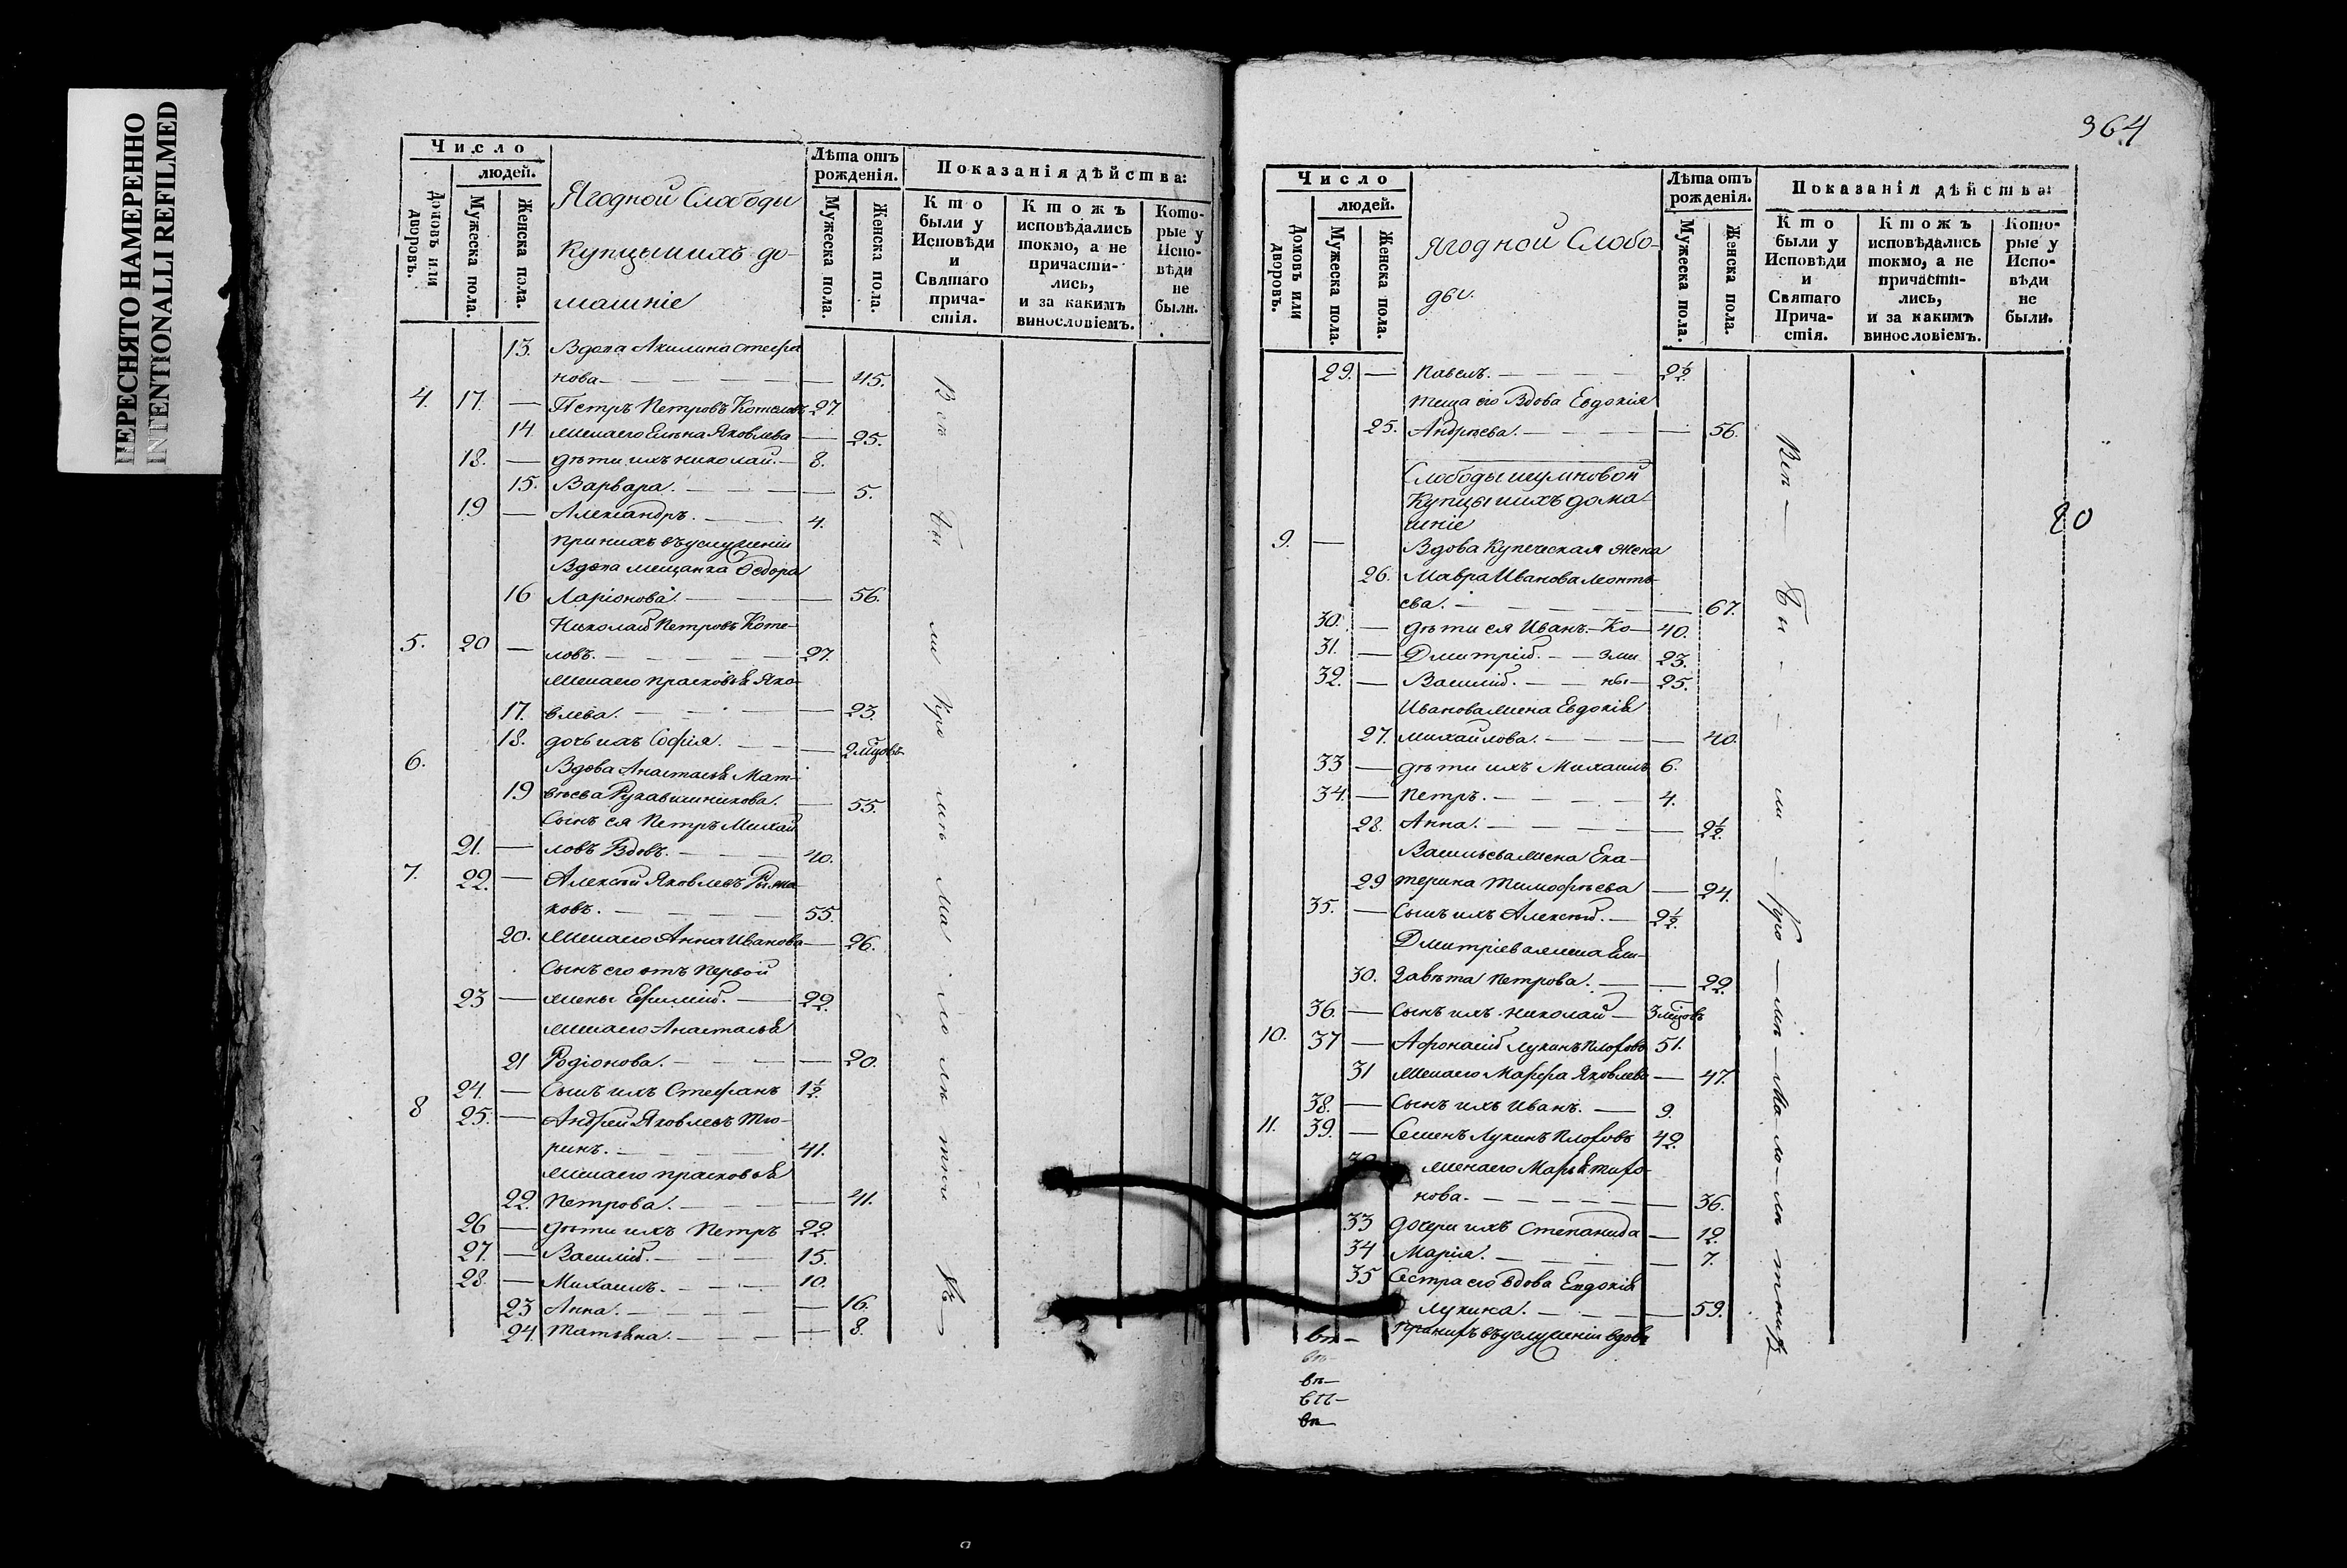 ПЕРЕСНЯТО НАМЕРЕННО
INTENTIONALLI REFILMED
Число
людей.
Домовъ или дворовъ.
Мужеска пола.
Женска пола.
Ягодной Слободы
купцы и ихъ до-
машніе
Лѣта отъ рожденія.
Мужеска пола.
Женска пола.
Показанія дѣйства:
Кто были у Исповѣди и Святаго прича- стія.
Ктожъ исповѣдались токмо, а не причасти- лись, и за какимъ винословіемъ.
Кото- рые у Испо- вѣди не были.
13. Вдова Акилина Стефа
нова — — 45.
4. 17. — Петръ Петровъ Котеловъ 27.
14 жена его Елена Яковлева — 25.
18. — дѣти ихъ Николай. — 8.
15. Варвара. — — 5.
19 — Александръ. — 4.
при нихъ въ услуженіи
Вдова мещанка Ѳедора
16 Ларіонова. — — 56.
Николай Петровъ Коте-
5. 20 — ловъ. — 27.
жена его Прасковья Яко-
17. влева. — — 23.
18. дочь ихъ Софія. — — 2 мцовъ
6. Вдова Анастасья Мат-
19 вѣева Рукавишникова. — 55.
Сынъ ея Петръ Михай
21. — ловъ Вдовъ. — 40.
7. 22. — Алексѣй Яковлевъ
ковъ. — 55.
20. жена его Анна Иванова — 26.
Сынъ его отъ первой
23 — жены Ефимій. — 22.
жена его Анастасья
21 Родіонова. — — 20.
24. — Сынъ ихъ Стефанъ 1½.
8 25. — Андрей Яковлевъ Тю-
ринъ. — 41.
жена его Прасковья
22. Петрова. — — 41.
26 — дѣти ихъ Петръ 22.
27. — Василій. — 15.
28. — Михаилъ. — 10.
23 Анна. — — 16.
24. Татьяна. — — 8.
Всѣ бы ли у Испо
364
Число
людей.
Домовъ или дворовъ.
Мужеска пола.
Женска пола.
Ягодной Слобо-
ды.
Лѣта отъ рожденія.
Мужеска пола.
Женска пола.
Показанія дѣйства:
Кто были у Исповѣди и Святаго Прича- стія.
Ктожъ исповѣдались токмо, а не причасти- лись, и за какимъ винословіемъ.
Кото- рые у Испо- вѣди не были.
29. — Павелъ. — 2½.
теща его Вдова Евдокія
25. Андреева. — — 56.
Слободы
Купцы и ихъ дома-
шніе
9. — Вдова Купеческая жена
26. Мавра Иванова Леонть-
ева. — — 67.
30. — дѣти ея Иванъ. — Ко — 40.
31. — Дмитрій. — зми 23.
32. — Василій. — ны — 25.
Иванова жена Евдокія
27. Михайлова. — — 40.
33 — дѣти ихъ Михаилъ 6.
34. — Петръ. — 4.
28. Анна. — — 2½.
Васильева жена Ека-
29 терина Тимофѣева — 24.
35. — Сынъ ихъ Алексѣй. — 2½.
Дмитріева жена Ели-
30. завѣта Петрова. — — 22.
36. — Сынъ ихъ Николай — 3 мцовъ
10. 37 — Афонасій Лукинъ 51.
31 жена его Марфа Яковлева — 47.
38. — Сынъ ихъ Иванъ. — 9.
11. 39. — Семенъ Лукинъ 42.
жена его Марья Тихо-
нова. — — 36.
33 дочери ихъ Степанида — 12.
34 Марія. — — 7.
35 Сестра его вдова Евдокія
Лукина. — — 59.
при нихъ въ услуженіи вдова
20